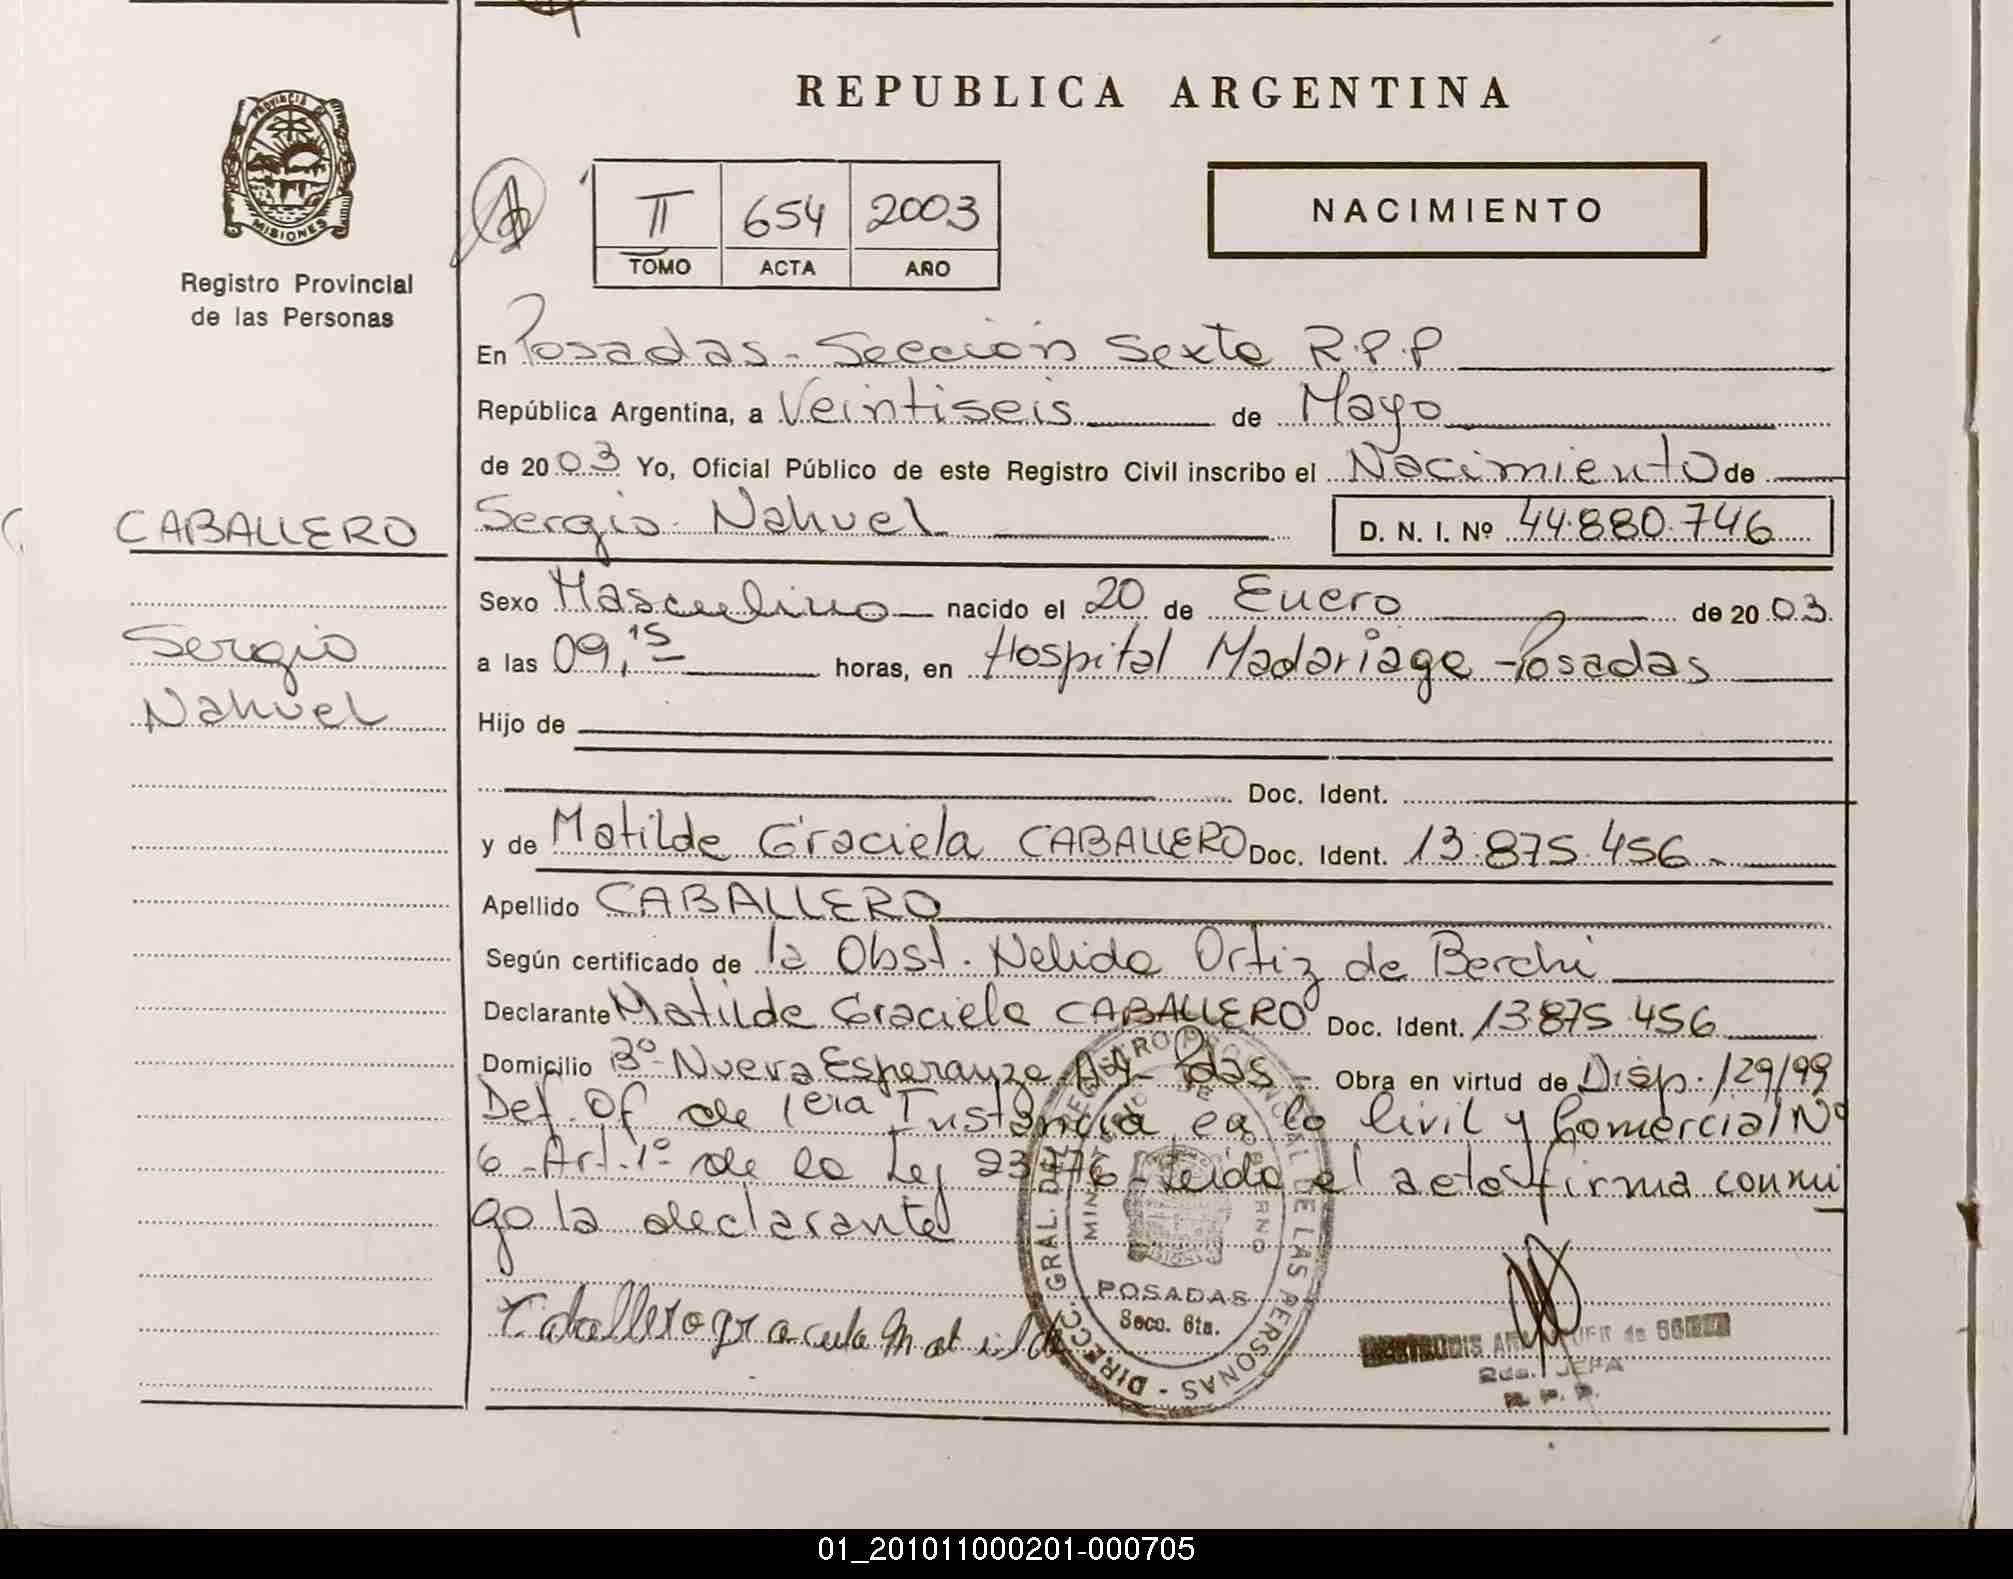 REPUBLICA ARGENTINA
PROVINCIA DE
MISIONES
Registro Provincial
de las Personas
II 654 2003
TOMO ACTA AÑO
NACIMIENTO
En Posadas - Sección Sexta R.P.P
República Argentina, a Veintiseis de Mayo
de 2003 Yo, Oficial Público de este Registro Civil inscribo el Nacimiento de
CABALLERO
Sergio Nahuel D. N. I. Nº 44.880.746
Sergio
Nahuel
Sexo Masculino nacido el 20 de Enero de 2003.
a las 09,15 horas, en Hospital Madariaga - Posadas
Hijo de
Doc. Ident.
y de Matilde Graciela CABALLERO Doc. Ident. 13.875.456 -
Apellido CABALLERO
Según certificado de la Obst. Nelida Ortiz de Berchi
Declarante Matilde Graciela CABALLERO Doc. Ident. 13.875.456
Domicilio Bº Nueva Esperanza Pdas - Obra en virtud de Disp. 129/99
Def. Of de 1era Instancia en lo Civil y Comercial Nº
6 - Art. 1º de la Ley 23776 - Leida el acta firma conmi
go la declarante
DIRECC. GRAL. DEL REGISTRO PROVINCIAL DE LAS PERSONAS
MINISTERIO DE GOBIERNO
POSADAS
Secc. 6ta.
2da. JEFA
R. P. P.
01_201011000201-000705